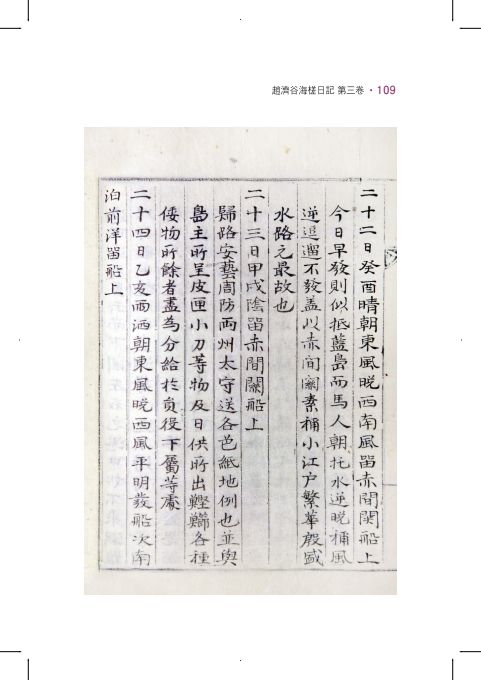 趙濟谷海槎日記 第三卷 · 109
二十二日癸酉晴朝東風晩西南風畱赤間関船上
今日早發則似抵藍島而馬人朝托水逆晩稱風
逆逗遛不發盖以赤間關素稱小江户繁華殷盛
水路之最故也
二十三日甲戌陰畱赤間關船上
歸路安藝周防两州太守送各色紙地例也並與
島主所呈皮匣小刀等物及日供所出鰹鰤各種
倭物所餘者盡為分給扵負役下屬等處
二十四日乙亥雨洒朝東風晩西風平明發船次南
泊前洋畱船上